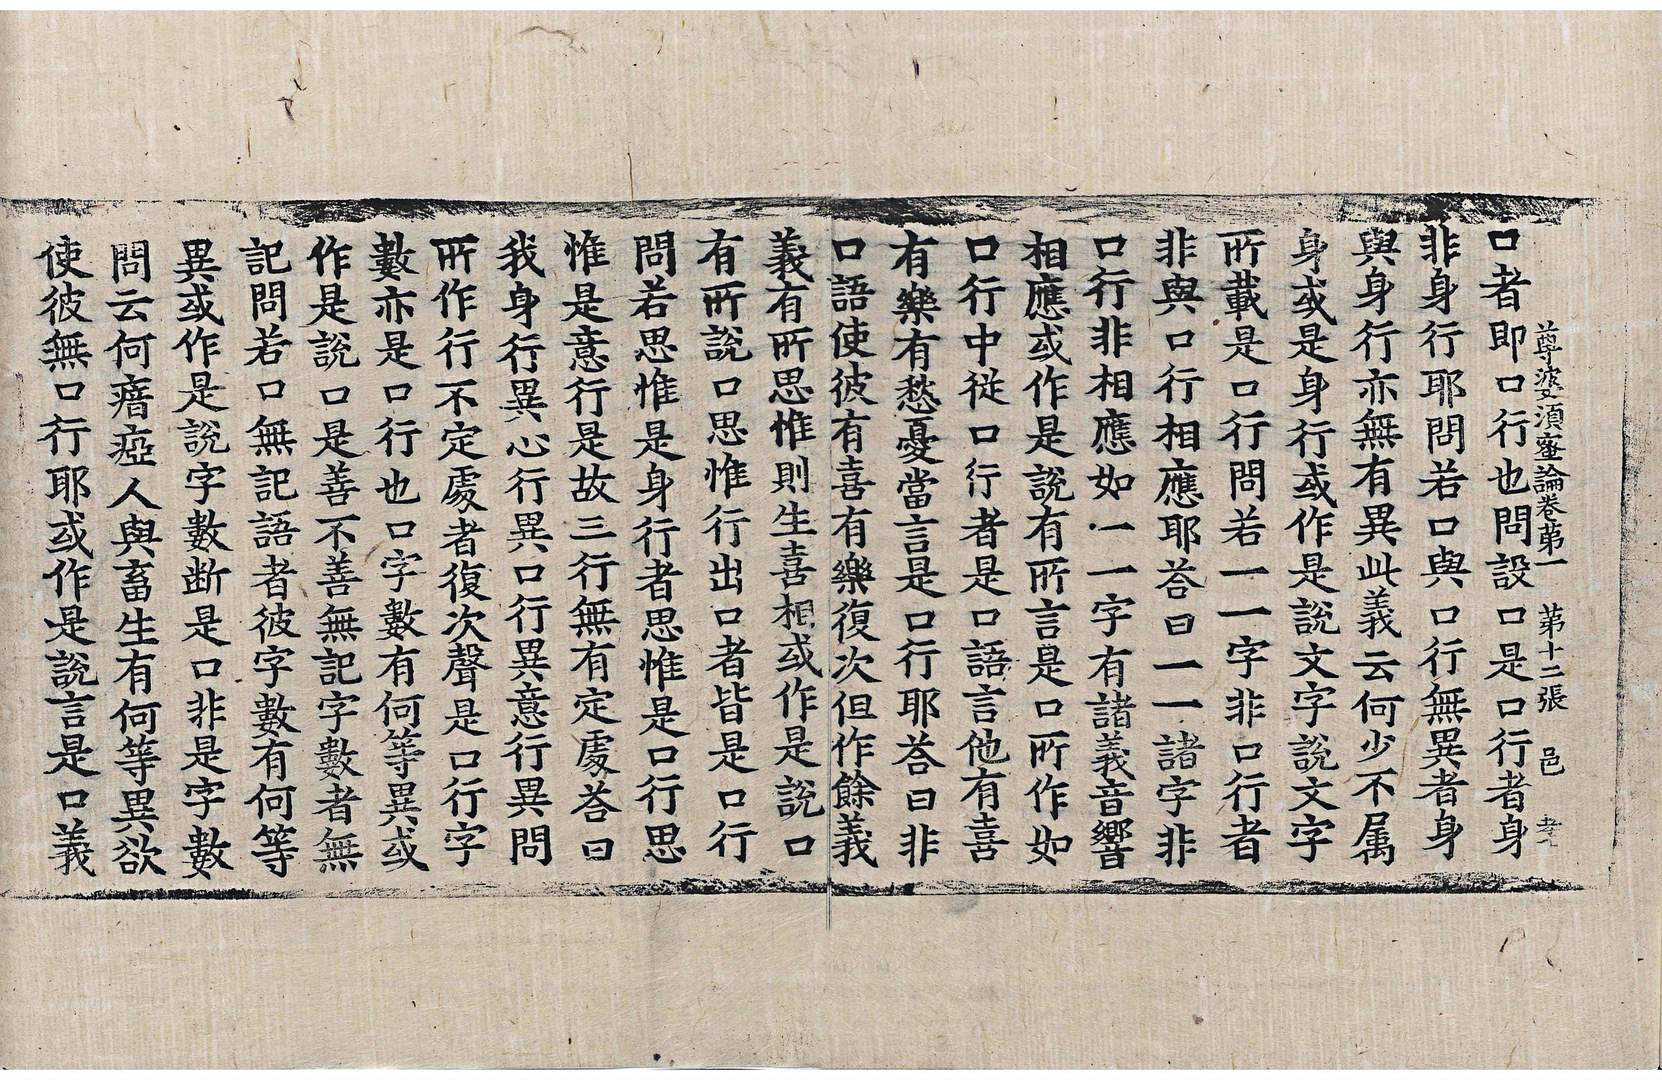 尊婆須蜜論卷第一 第十二張 邑
口者即口行也問設口是口行者身
非身行耶問若口與口行無異者身
與身行亦無有異此義云何少不属
身或是身行或作是說文字說文字
所載是口行問若一一字非口行者
非與口行相應耶荅曰一一諸字非
口行非相應如一一字有諸義音響
相應或作是說有所言是口所作如
口行中従口行者是口語言他有喜
有樂有愁憂當言是口行耶荅曰非
口語使彼有喜有樂復次但作餘義
義有所思惟則生喜相或作是說口
有所說口思惟行出口者皆是口行
問若思惟是身行者思惟是口行思
惟是意行是故三行無有定處荅曰
我身行異心行異口行異意行異問
所作行不定處者復次聲是口行字
數亦是口行也口字數有何等異或
作是說口是善不善無記字數者無
記問若口無記語者彼字數有何等
異或作是說字數断是口非是字數
問云何瘖瘂人與畜生有何等異欲
使彼無口行耶或作是說言是口義